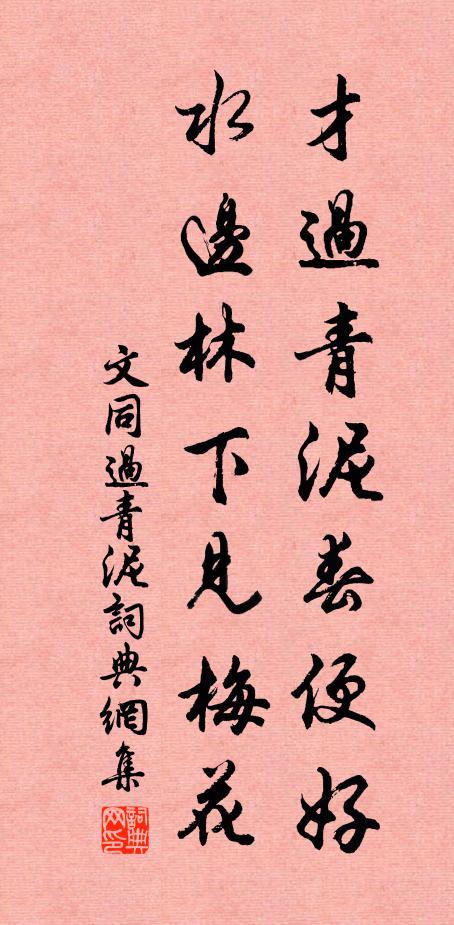 才過青泥春便好
水邊林下見梅花
文同過青泥詞典網集
詞典網印